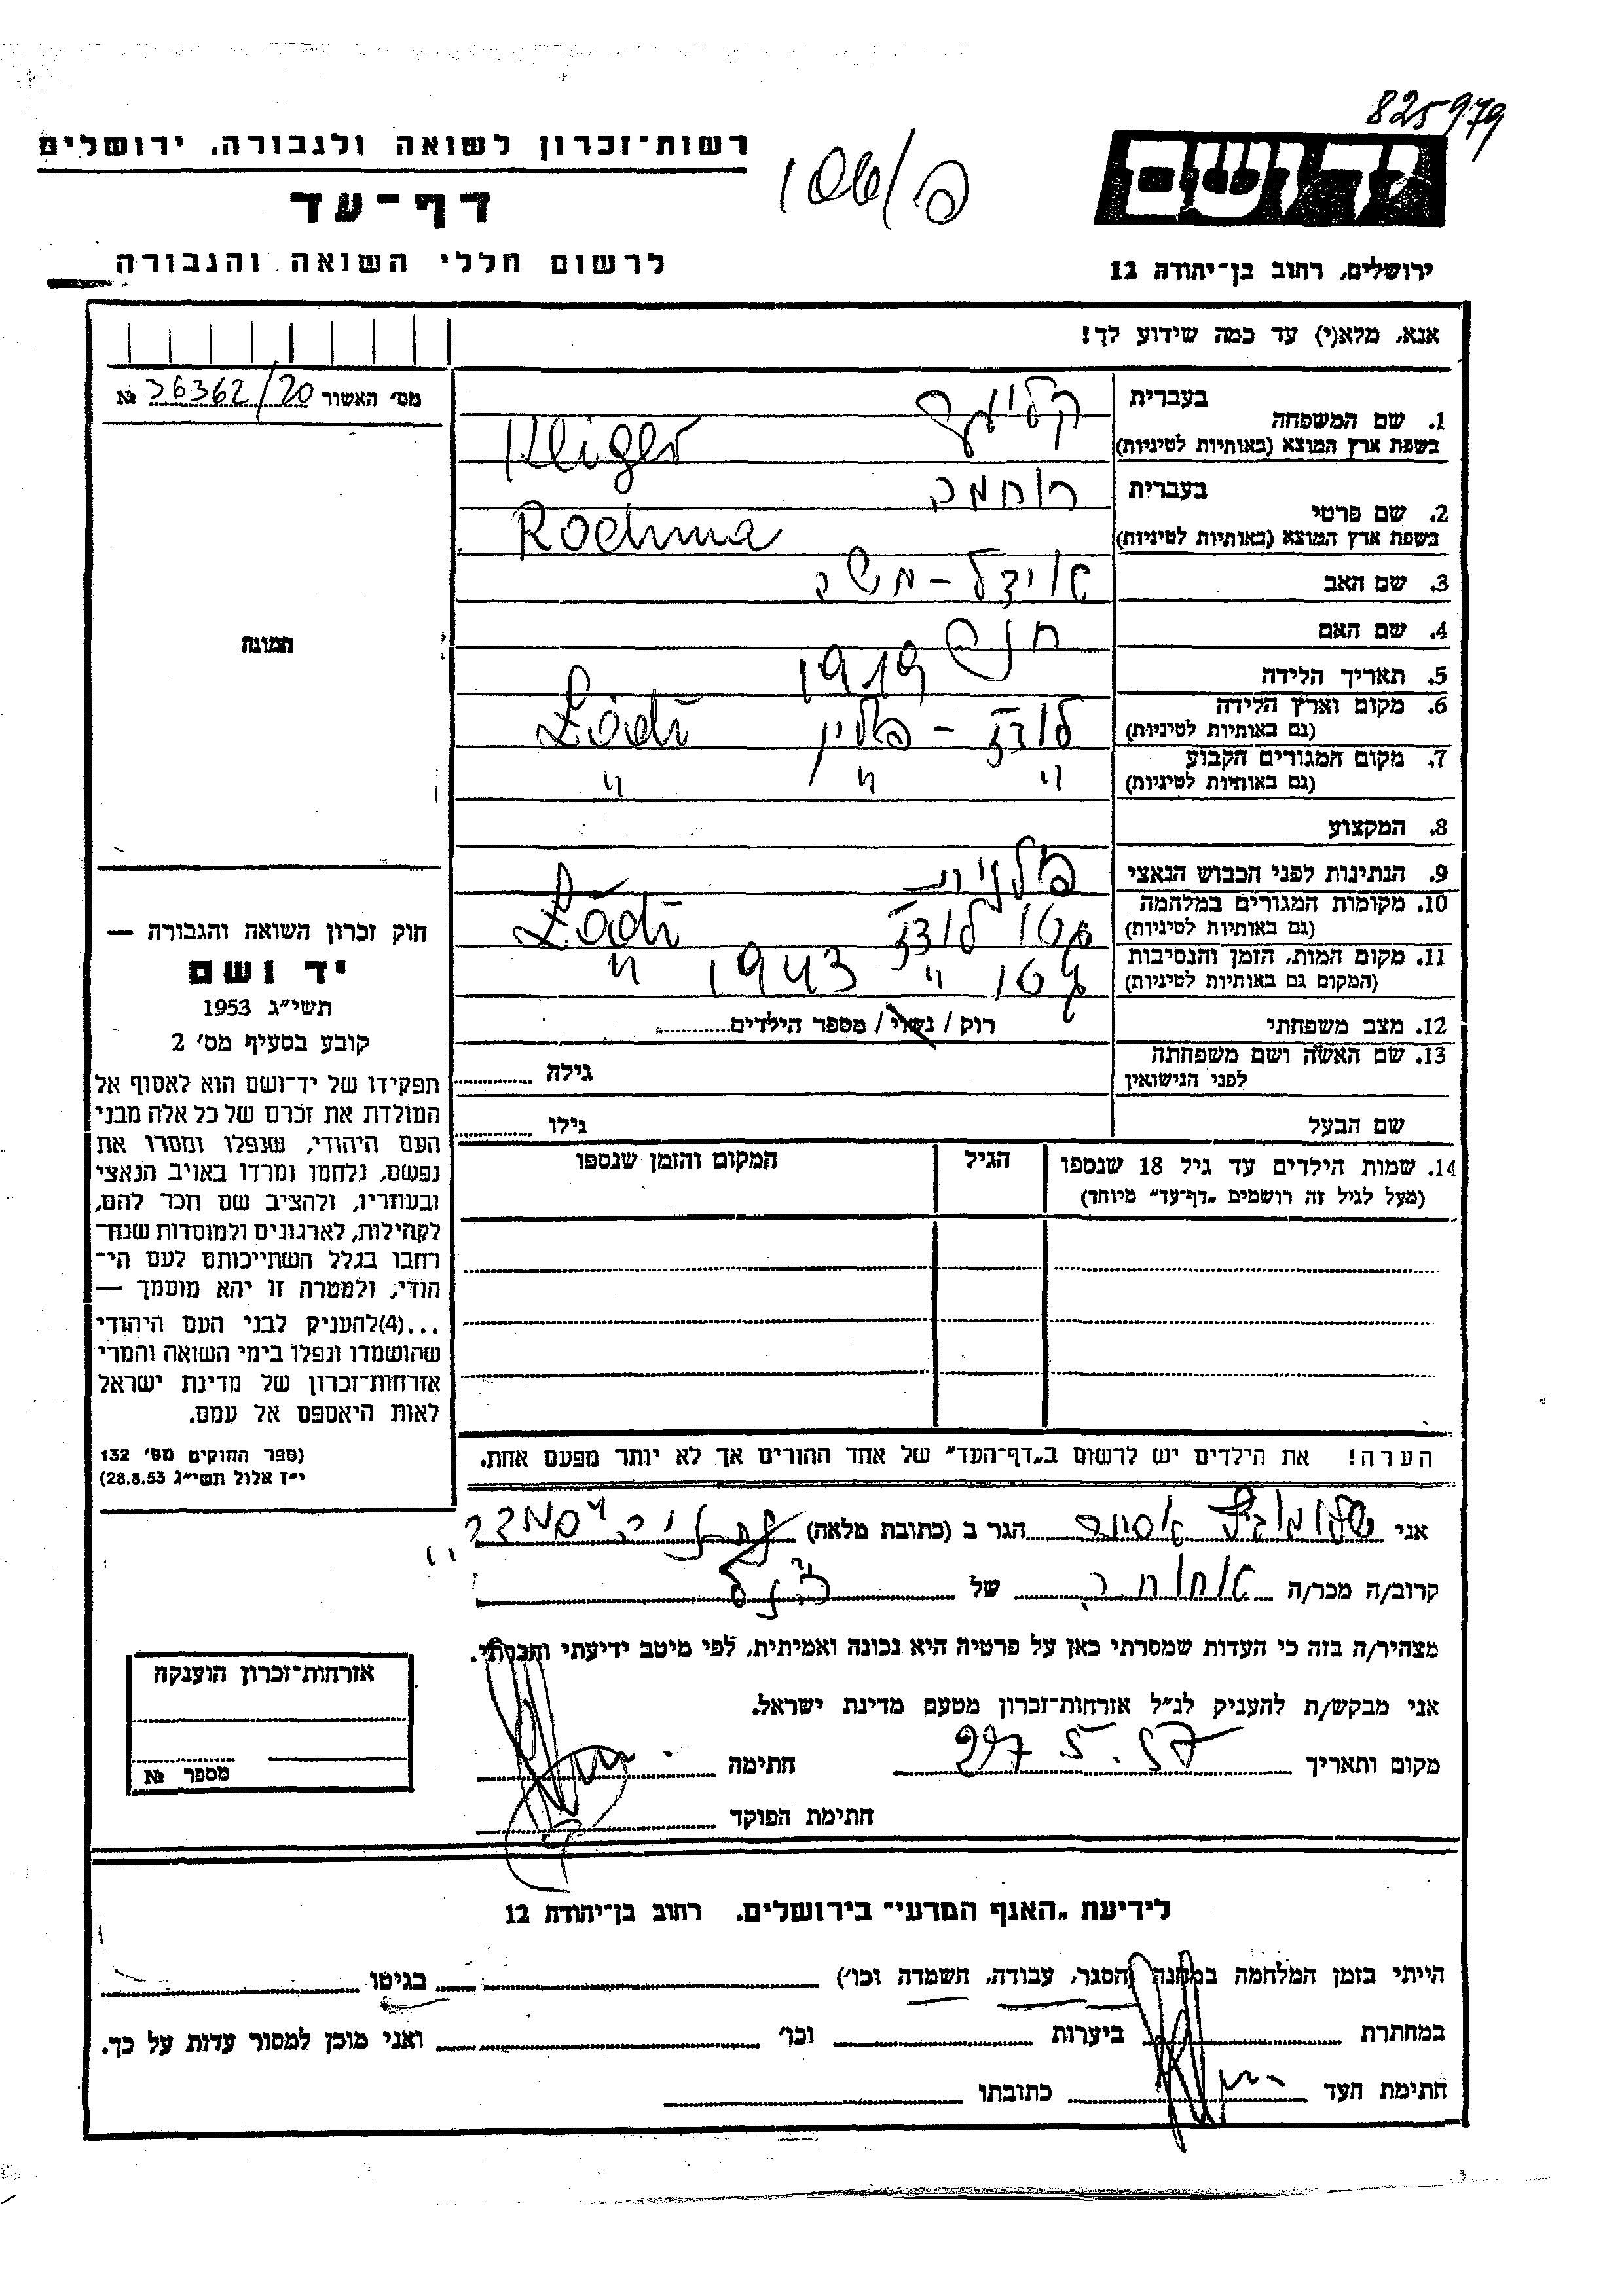 825979
רשות־זכרון לשואה ולגבורה, ירושלים
דף־עד
לרשום חללי השואה והגבורה
יד ושם
ירושלים, רחוב בן־יהודה 12
אנא, מלא(י) עד כמה שידוע לך!
מס׳ האשור 36362/20 №
תמונה
1. שם המשפחה בעברית קליגר
בשפת ארץ המוצא (באותיות לטיניות) Kliger
2. שם פרטי בעברית רוחמה
בשפת ארץ המוצא (באותיות לטיניות) Rochma
3. שם האב אידל – משה
4. שם האם חנה
5. תאריך הלידה 1919
6. מקום וארץ הלידה לודז – פולין Łódź
(גם באותיות לטיניות)
7. מקום המגורים הקבוע " " "
(גם באותיות לטיניות)
8. המקצוע
9. הנתינות לפני הכבוש הנאצי פולנית
10. מקומות המגורים במלחמה גטו לודז Łódź
(גם באותיות לטיניות)
11. מקום המות, הזמן והנסיבות גטו " 1943 "
(המקום גם באותיות לטיניות)
12. מצב משפחתי רוק / נשוי / מספר הילדים
13. שם האשה ושם משפחתה גילה
לפני הנישואין
שם הבעל גילו
14. שמות הילדים עד גיל 18 שנספו הגיל המקום והזמן שנספו
(מעל לגיל זה רושמים „דף־עד” מיוחד)
הערה! את הילדים יש לרשום ב„דף־העד” של אחד ההורים אך לא יותר מפעם אחת.
חוק זכרון השואה והגבורה —
יד ושם
תשי״ג 1953
קובע בסעיף מס׳ 2
תפקידו של יד־ושם הוא לאסוף אל
המולדת את זכרם של כל אלה מבני
העם היהודי, שנפלו ומסרו את
נפשם, נלחמו ומרדו באויב הנאצי
ובעוזריו, ולהציב שם וזכר להם,
לקהילות, לארגונים ולמוסדות שנח־
רבו בגלל השתייכותם לעם הי־
הודי, ולמטרה זו יהא מוסמך —
...(4)להעניק לבני העם היהודי
שהושמדו ונפלו בימי השואה והמרי
אזרחות־זכרון של מדינת ישראל
לאות היאספם אל עמם.
(ספר החוקים מס׳ 132
י״ז אלול תשי״ג 28.8.53)
אני אסתר הגר ב (כתובת מלאה) נתניה
קרוב/ה מכר/ה אחותה של הנ״ל
מצהיר/ה בזה כי העדות שמסרתי כאן על פרטיה היא נכונה ואמיתית, לפי מיטב ידיעתי והכרתי.
אני מבקש/ת להעניק לנ״ל אזרחות־זכרון מטעם מדינת ישראל.
מקום ותאריך 27.5.57 חתימה
חתימת הפוקד
אזרחות־זכרון הוענקה
מספר №
לידיעת „האגף המדעי” בירושלים, רחוב בן־יהודה 12
הייתי בזמן המלחמה במחנה (הסגר, עבודה, השמדה וכו׳) בגיטו
במחתרת ביערות וכו׳ ואני מוכן למסור עדות על כך.
חתימת העד כתובתו